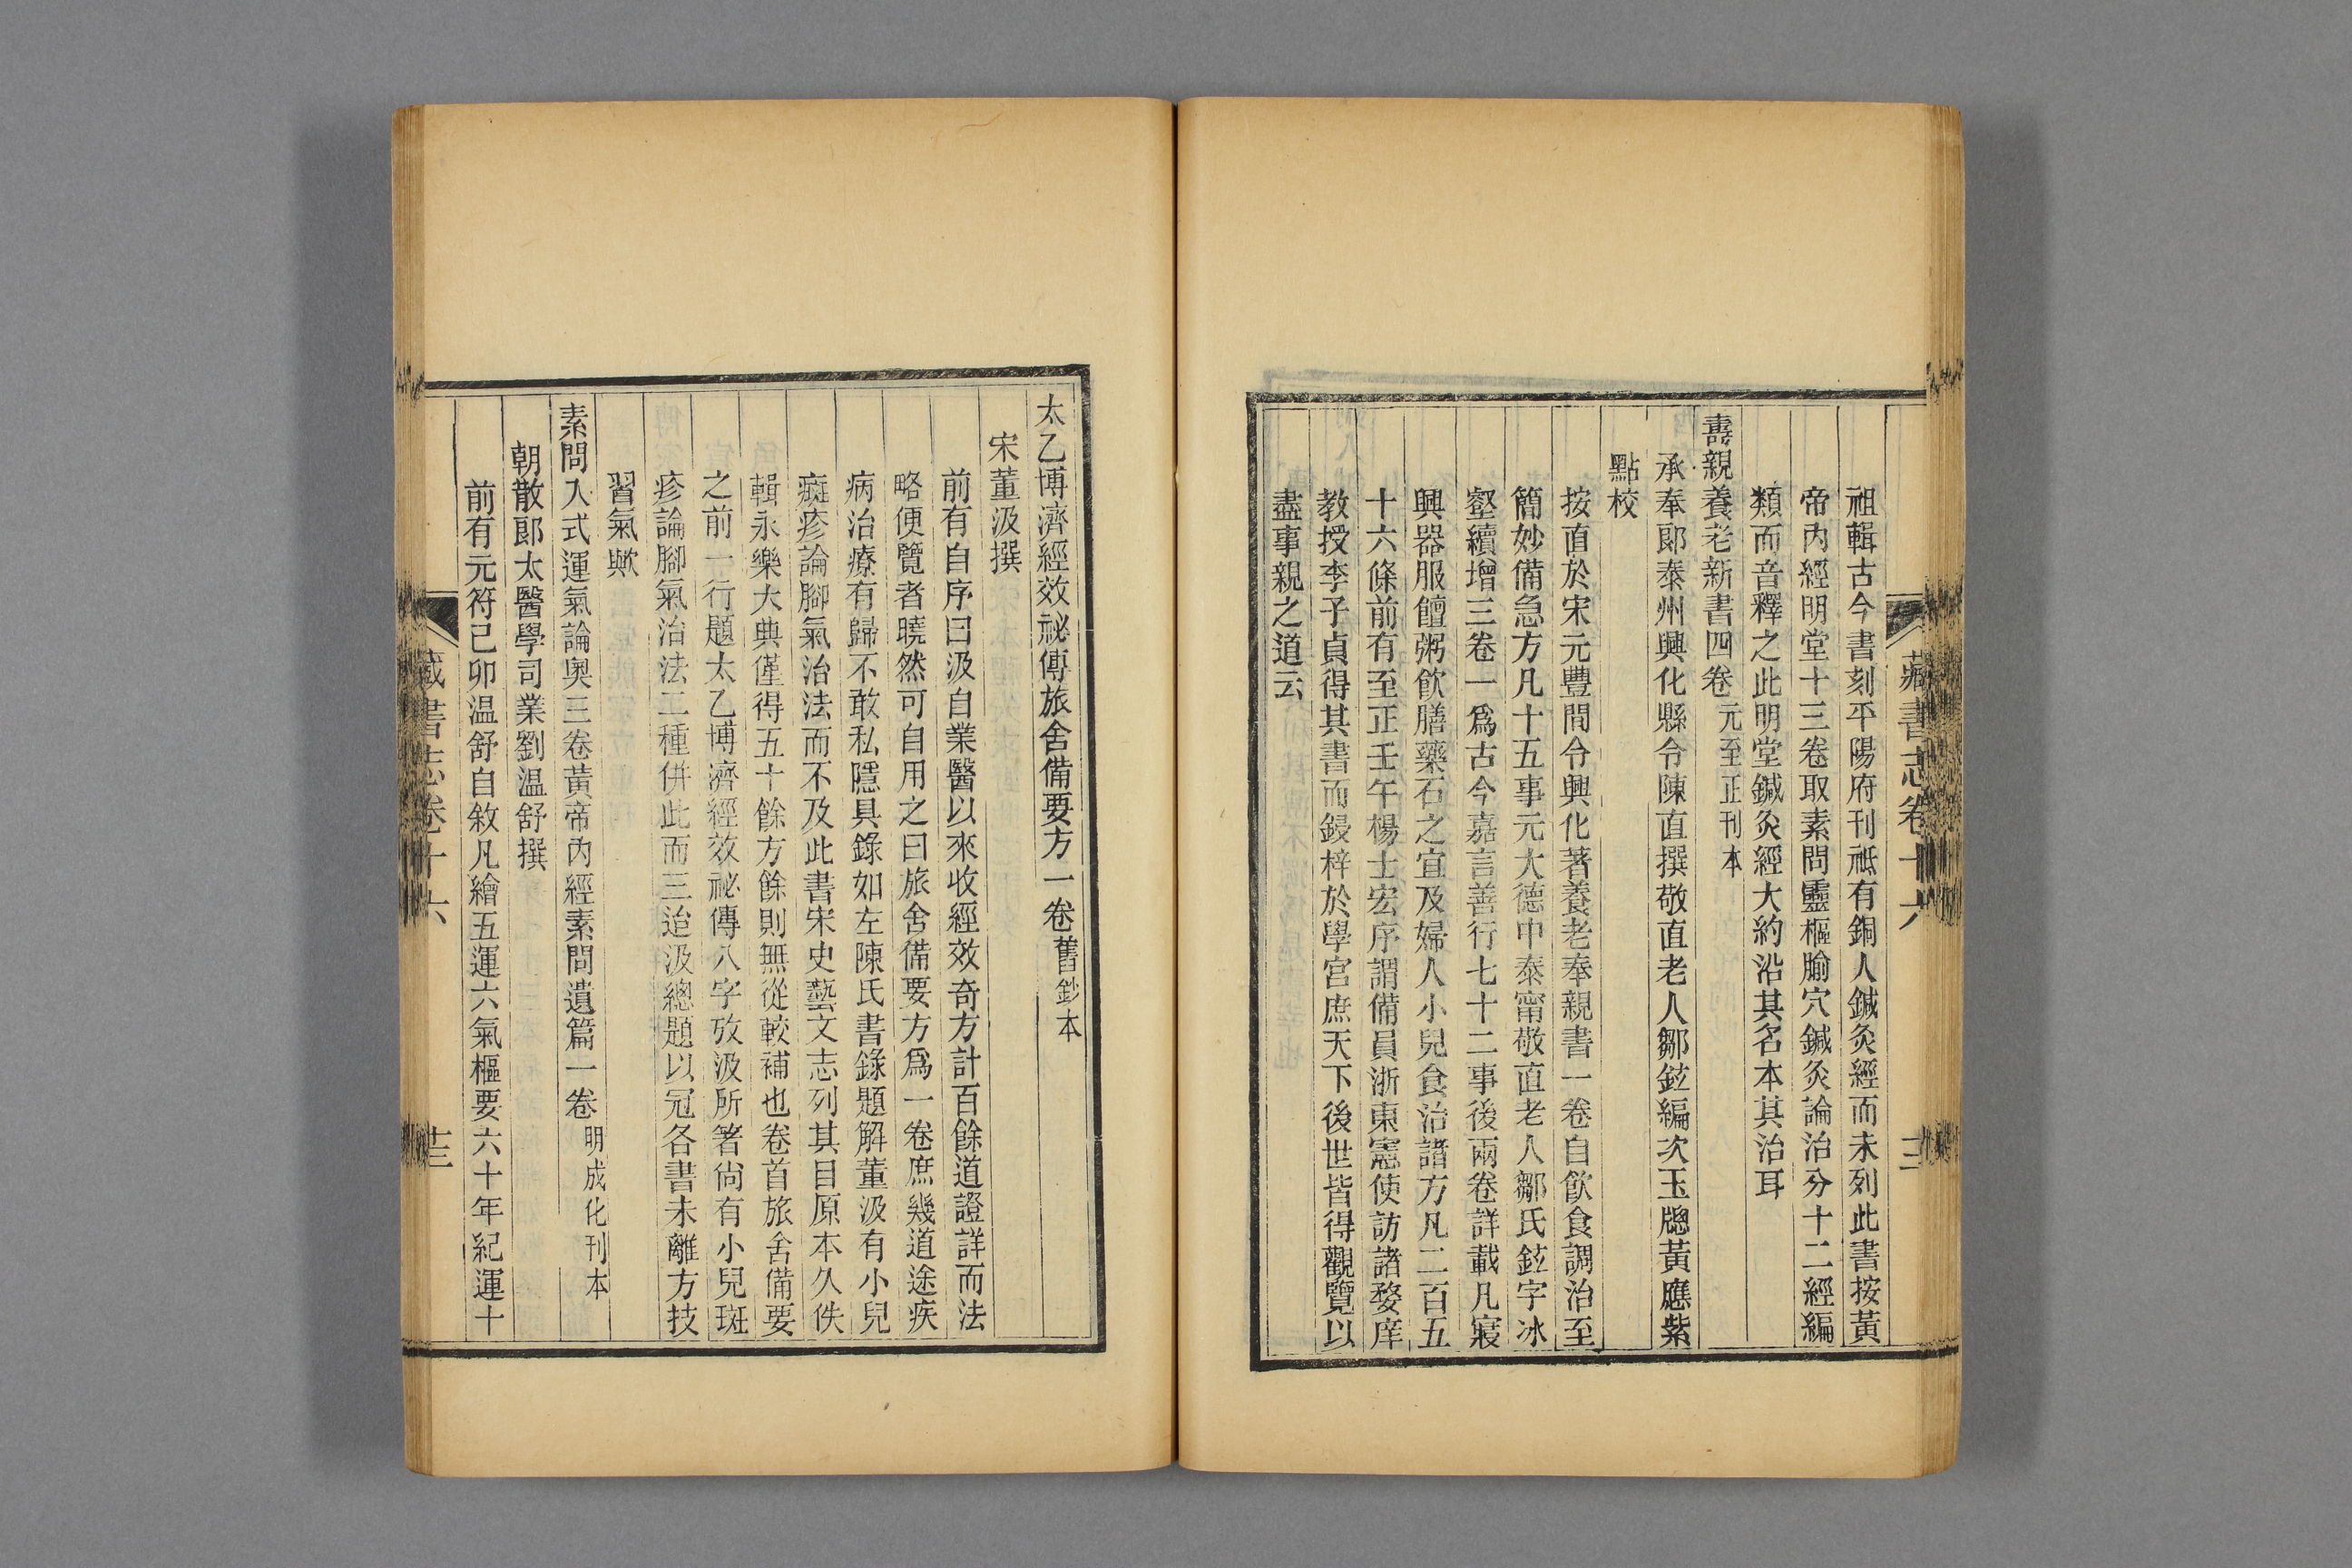 祖輯古今書刻平陽府刊祗有銅人鍼灸經而未列此書按黃
帝內經明堂十三卷取素問靈樞腧穴鍼灸論治分十二經編
類而音釋之此明堂鍼灸經大約沿其名本其治耳
壽親養老新書四卷元至正刊本
承奉郞泰州興化縣令陳直撰敬直老人鄒鉉編次玉牕黃應紫
點校
按直於宋元豐間令興化著養老奉親書一卷自飮食調治至
簡妙備急方凡十五事元大德中泰甯敬直老人鄒氏鉉字冰
壑續增三卷一爲古今嘉言善行七十二事後兩卷詳載凡寢
興器服饘粥飮膳藥石之宜及婦人小兒食治諸方凡二百五
十六條前有至正壬午楊士宏序謂備員浙東憲使訪諸婺庠
教授李子貞得其書而鋟梓於學宮庶天下後世皆得觀覽以
盡事親之道云
藏書志卷十六
太乙博濟經效祕傳旅舍備要方一卷舊鈔本
宋董汲撰
前有自序曰汲自業醫以來收經效奇方計百餘道證詳而法
略便覽者曉然可自用之曰旅舍備要方爲一卷庶幾道途疾
病治療有歸不敢私隱具錄如左陳氏書錄題解董汲有小兒
癍疹論腳氣治法而不及此書宋史藝文志列其目原本久佚
輯永樂大典僅得五十餘方餘則無從較補也卷首旅舍備要
之前一行題太乙博濟經效祕傳八字攷汲所箸尙有小兒斑
疹論腳氣治法二種倂此而三迨汲總題以冠各書未離方技
習氣歟
素問入式運氣論奥三卷黃帝內經素問遺篇一卷明成化刊本
朝散郞太醫學司業劉溫舒撰
前有元符己卯溫舒自敘凡繪五運六氣樞要六十年紀運十
藏書志卷十六